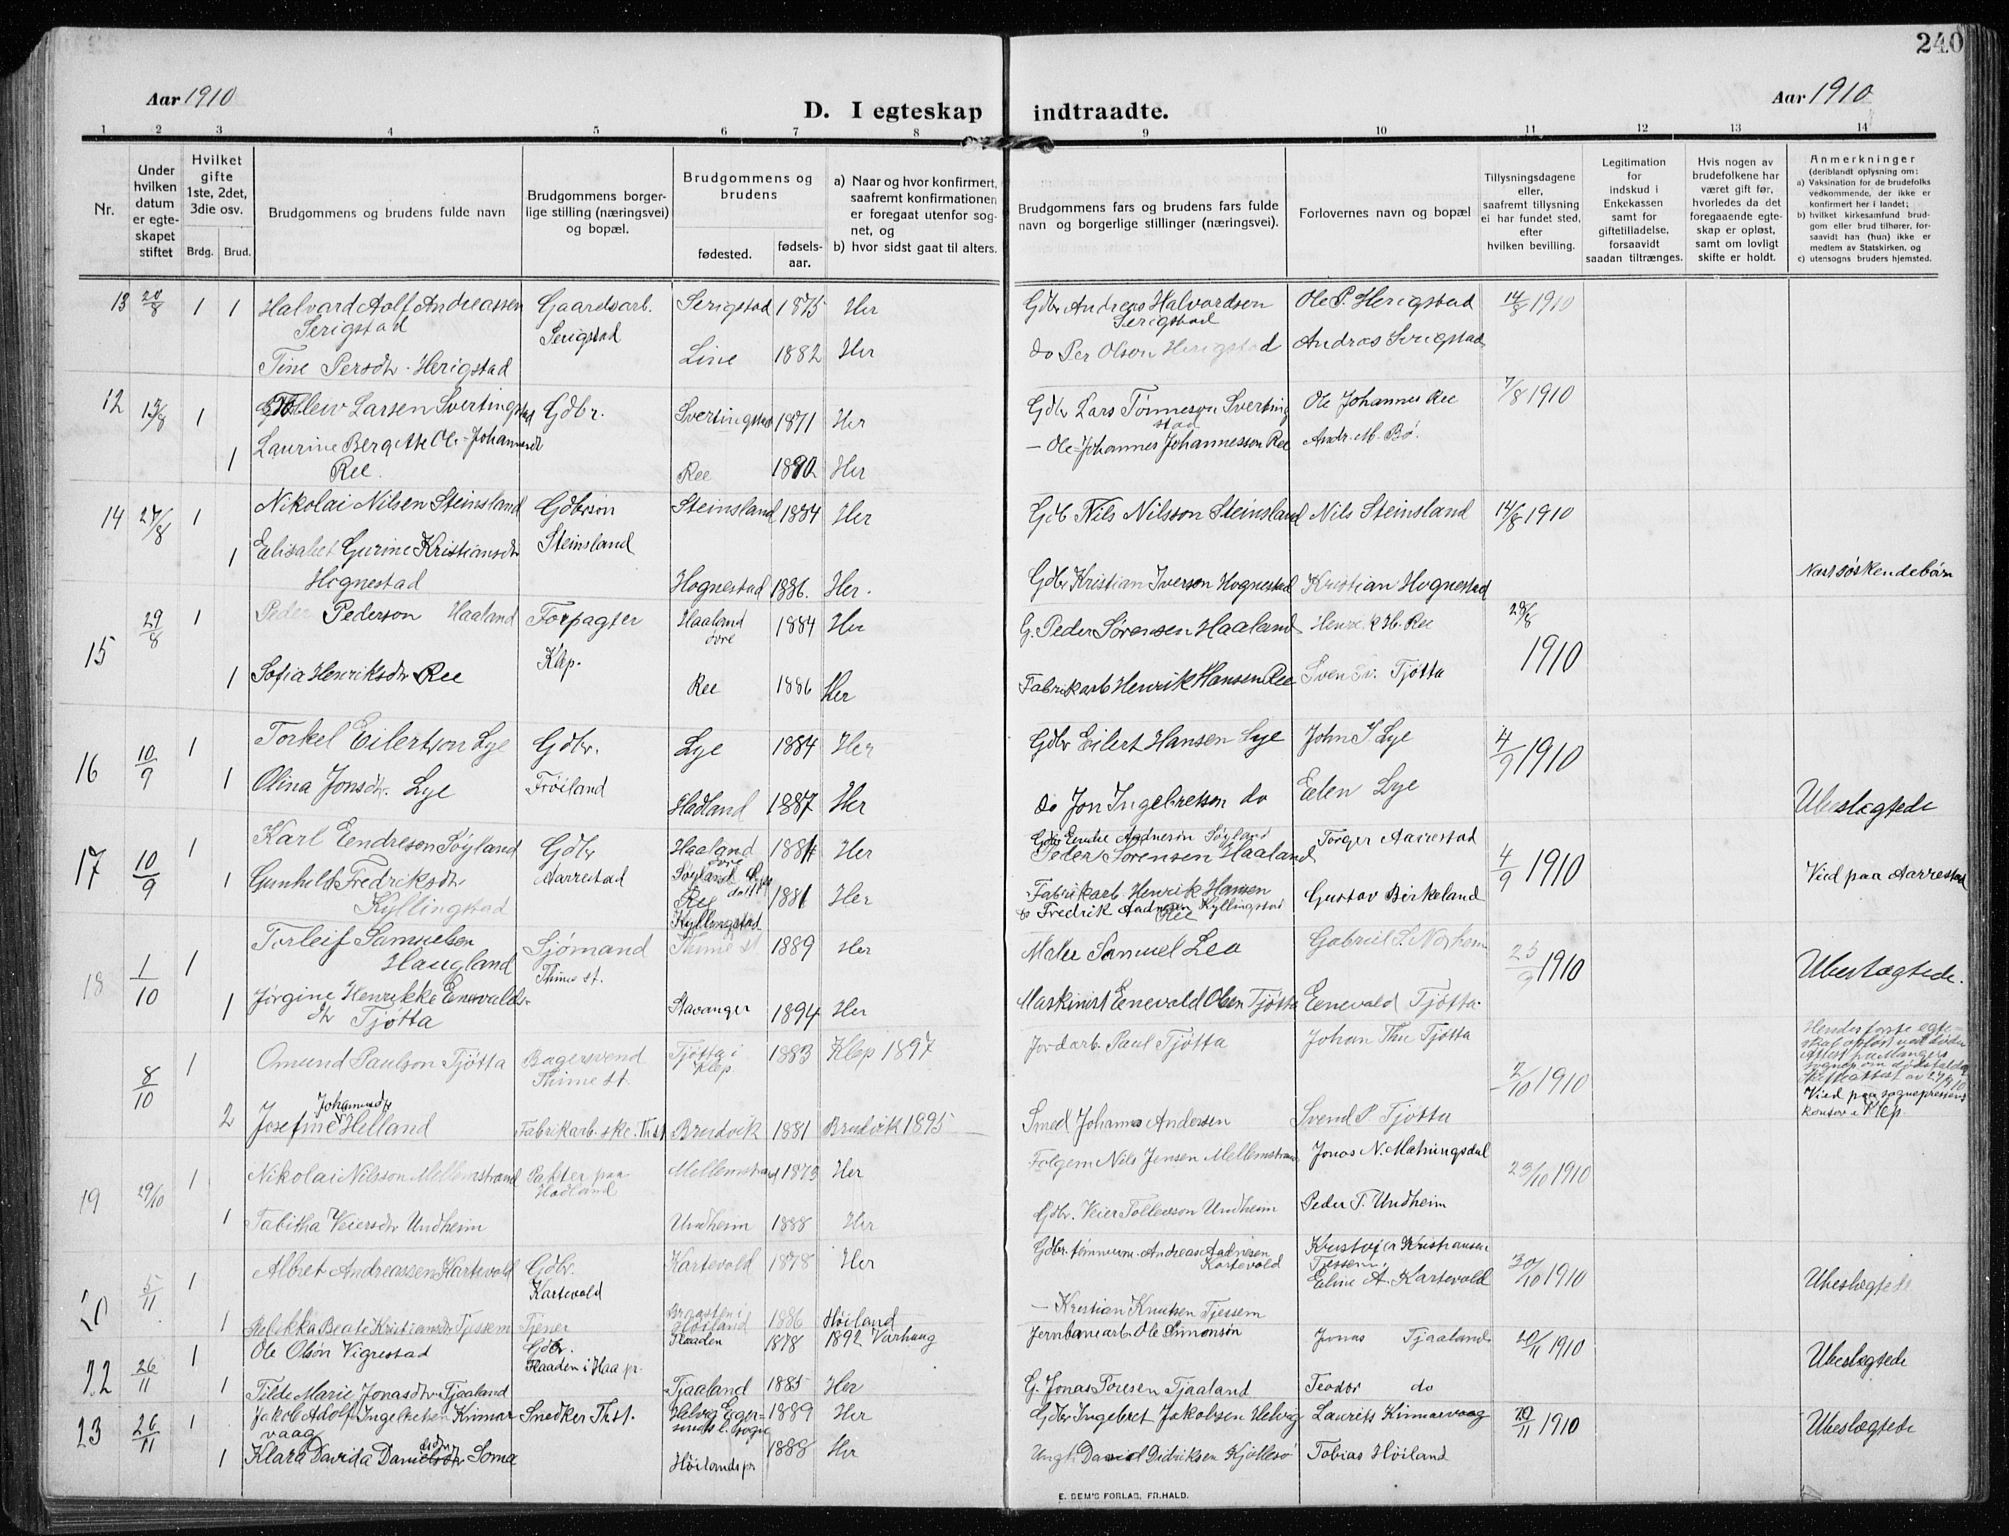 240
Aar 1910
D. I egteskap indtraadte.
Aar 1910
1 2 3 4 5 6 7 8 9 10 11 12 13 14
Nr.
Under hvilken datum er egteskapet stiftet
Hvilket gifte 1ste, 2det, 3die osv.
Brdg. Brud.
Brudgommens og brudens fulde navn
Brudgommens borgerlige stilling (næringsvei) og bopæl.
Brudgommens og brudens
fødested. fødselsaar.
a) Naar og hvor konfirmert, saafremt konfirmationen er foregaat utenfor sognet, og
b) hvor sidst gaat til alters.
Brudgommens fars og brudens fars fulde navn og borgerlige stillinger (næringsvei).
Forlovernes navn og bopæl
Tillysningsdagene eller, saafremt tillysning ei har fundet sted, efter hvilken bevilling.
Legitimation for indskud i Enkekassen samt for giftetilladelse, forsaavidt saadan tiltrænges.
Hvis nogen av brudefolkene har været gift før, hvorledes da det foregaaende egteskap er opløst, samt om lovligt skifte er holdt.
Anmerkninger
(deriblandt oplysning om:
a) Vaksination for de brudefolks vedkommende, der ikke er konfirmert her i landet;
b) hvilket kirkesamfund brudgom eller brud tilhører, forsaavidt han (hun) ikke er medlem av Statskirken, og
c) utensogns bruders hjemsted.
13 20/8 1 1 Halvard Adolf Andreassen Gaardsarb. Serigstad 1875 Her Gdbr Andreas Halvardsen Ole P. Herigstad 14/8 1910
Serigstad Serigstad Serigstad
Tine Persdtr. Herigstad Line 1882 Her do Per Olson Herigstad Andreas Serigstad
12 13/8 1 Tollew Larsen Svertingstad Gdbr. Svertingstad 1871 Her Gdbr Lars Tønneson Svertingstad Ole Johannes Ree 7/8 1910
1 Laurine Bergitte Ole-Johannesdtr Ree 18 0 Her — Ole-Johannes Johannesson Ree Andr. M. Bø.
Ree
14 27/8 1 Nikolai Nilsen Steinsland Gdbrsøn Steinsland 1884 Her Gdb Nils Nilsson Steinsland Nils Steinsland 14/8 1910
1 Elisabet Gurine Kristiansdtr Steinsland
Hognestad Hognestad 1886. Her. Gdbr Kristian Iverson Hognestad Kristian Hognestad Næstsøskendebørn
15 29/8 1 Peder Pederson Haaland Forpagter Haaland øvre 1884 Her G. Peder Sørensen Haaland Henrik H. Ree 28/8 1910
1 Sofia Henriksdtr Ree Klep. Ree 1886 Her Fabrikarb Henrik Hansen Ree Sven Tjøtta
16 10/9 1 Torkel Eilertson Lye Gdbr. Lye 1884 Her Gdbr Eilert Hansen Lye John J. Lye 4/9 1910
1 Olina Jonsdtr. Lye Frøiland Hadland 1887 Her do Jon Ingebretsen do Eden Lye Ubeslægtede
17 10/9 1 Karl Eendreson Søyland Gdbr Haaland øvre 1884 Her Gdbr Eendre Aadneson Søyland Torger Aarrestad 4/9 1910
Aarrestad Søyland Peder Sørensen Haaland
1 Gunhild Fredriksdtr Ree 1881 Her Fabrikarb Henrik Hansen Ree Gustav Birkeland Vied paa Aarrestad
Kyllingstad Kyllingstad Fredrik Aadnesen Kyllingstad
18 1/10 1 Torleif Samuelsen Sjømand Thime st. 1889 Her Maler Samuel Lea Gabriel S. Norheim 25/9 1910
Haugland Thime st.
1 Jørgine Henrikke Eenevaldsdtr Stavanger 1894 Her Maskinist Eenevald Olsen Tjøtta Eenevald Tjøtta. Ubeslægtede.
Tjøtta
8/10 1 Omund Paulson Tjøtta Bagersvend Tjøtta i Klep 1883 Klep 1897 Jordarb. Paul Tjøtta Johan Thu Tjøtta 2/10 1910
Thime st.
2 Josefine Johannesdtr Helland Fabrikarb.ske. Th.st Bruvik 1881 Bruvik 1895 Smed Johannes Andersen Svend P. Tjøtta Vied paa sognepræstens kontor i Klep.
19 29/10 1 Nikolai Nilsson Mellemstrand Pakter paa Hadland Mellemstrand 1873 Her Folgem Nils Jensen Mellemstrand Jonas N. Matningsdal 23/10 1910
1 Tabitha Veiersdtr Undheim Undheim 1888 Her Gdbr. Veier Tollefsson Undheim Peder T. Undheim
20 5/11 1 Albret Andreassen Kartevold Gdbr. Kartevold 1878 Her Gdbr. tømmerm. Andreas Aadnesen Kartevold Kristofer Kristiansen Tjessem 30/10 1910
Kartevold Eline A. Kartevold Ubeslægtede
1 Rebekka Beate Kristiansdtr Tjessem Tjener Høiland 1886 Høiland — Kristian Knutsen Tjessem
22 26/11 1 Ole Olsøn Vigrestad Gdbr. Flaaden 1878 1892 Varhaug Jernbanearb. Ole Simonsøn Jonas Tjaaland 20/11 1910
Flaaden i Haa pr. Ubeslægtede
1 Tilde Marie Jonasdtr Tjaaland Tjaaland 1885 Her G. Jonas Toresen Tjaaland Teodor do
23 26/11 1 Jakob Adolf Ingebretsen Kinnarvaag Snedker Th.st. Helvig Egersunds l. sogn 1889 Her Gdbr Ingebret Jakobsen Helvig Laurits Kinnarvaag 20/11 1910 Ubeslægtede
1 Klara Davida Soma Høilands pr. 1888 Her Ungk. David Didriksen Kjøllesø Tobias Høiland
E. SEM'S FORLAG, FR.HALD.